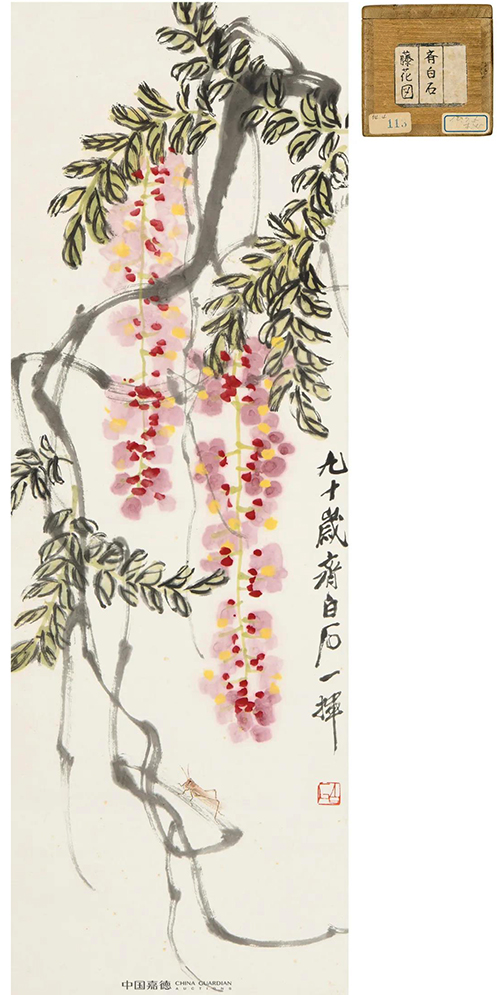 九十歲齊白石一揮
斉白石
藤花図
115
中国嘉德 CHINA GUARDIAN
AUCTIONS